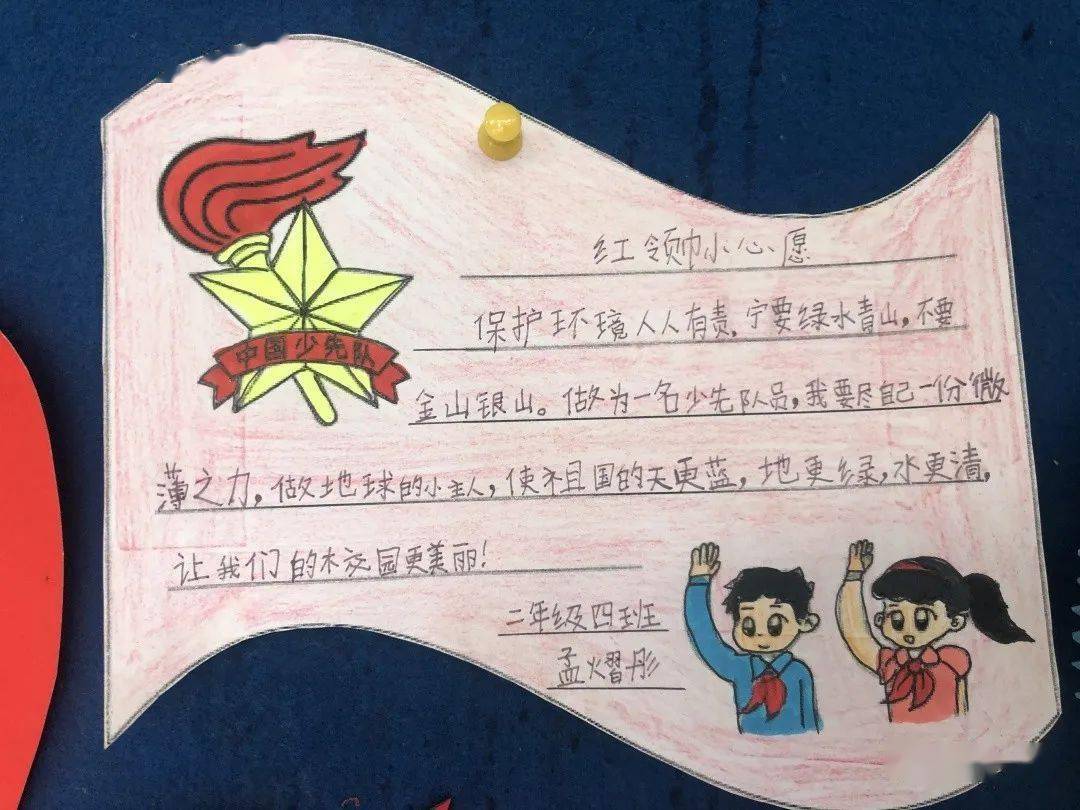 中国少先队
红领巾小心愿
保护环境人人有责,宁要绿水青山,不要
金山银山。做为一名少先队员,我要尽自己一份微
薄之力,做地球的小主人,使祖国的天更蓝,地更绿,水更清,
让我们的校园更美丽!
二年级四班
孟熠彤